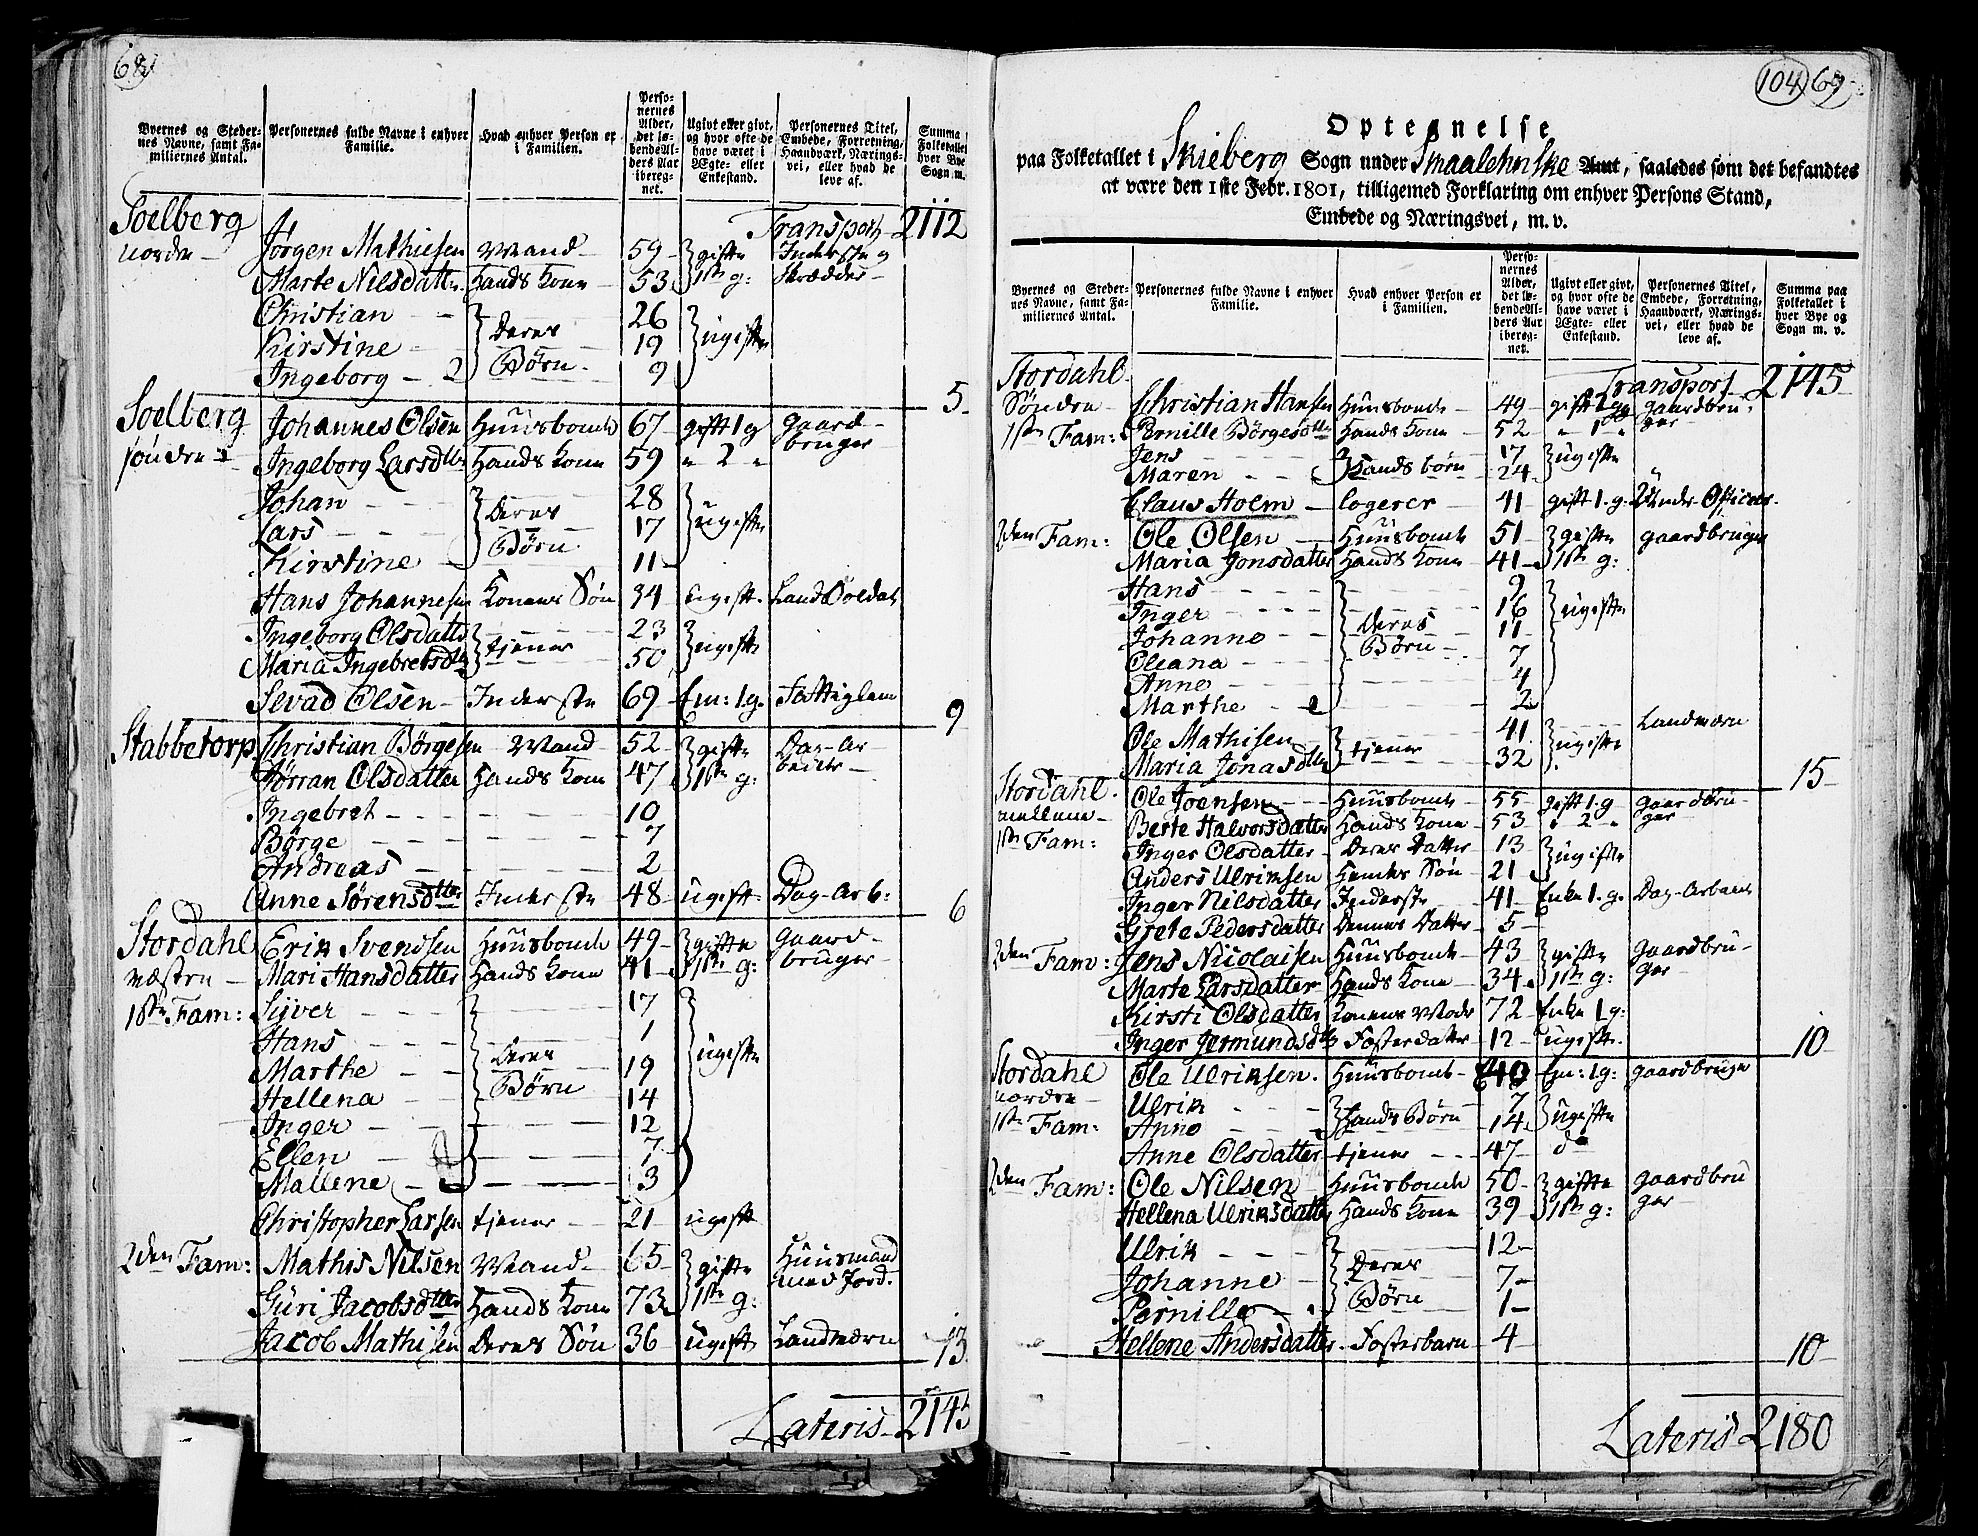 68
Byernes og Steder-
nes Navne, samt Fa-
miliernes Antal.
Personernes fulde Navne i enhver
Familie.
Hvad enhver Person er
i Familien.
Perso-
nernes
Alder,
det lø-
bende Al-
ders Aar
ibereg-
net.
Ugivt eller givt,
og hvor ofte de
have været i
Ægte- eller
Enkestand.
Personernes Titel,
Embede, Forretning,
Haandværk, Nærings-
vei, eller hvad de
leve af.
Summa
Folketallet
hver Bye
Sogn m.
Transport 2112
Soelberg
nordre - Jørgen Mathiesen Mand - 59 - gifte Inderste og
Marte Nilsdatter Hands Kone 53 1ste g: Skrædder -
Christian - - Deres 26 ugifte
Kirstine - Børn 19
Ingeborg - 2 9
5
Soelberg Johannes Olsen Huusbonde 67 - gift 1 g gaard-
søndre Ingeborg Larsdtter Hands Kone 59 " 2 " bruger
Johan - - Deres 28 ugifte
Lars - - Børn 17
Kirstine - 11
Hans Johannesen Konens Søn 34 ugift Land Soldat
Ingeborg Olsdatter tjener 23 ugifte
Maria Ingebretsdtter 50
Sevad Olsen - Inderste 69 Em: 1 g. Fattiglem
9
Stabbetorp Christian Børgesen Mand 52 gifte Dag-Ar-
Jørran Olsdatter Hands Kone 47 1ste g: beider -
Ingebret - - 10
Børge - - 7
Andreas - 2
Anne Sørensdtter Inderste 48 - ugift Dag-Arb:
6
Stordahl Erik Svendsen Huusbonde 49 - gifte gaard-
væstre - Mari Hansdatter Hands Kone 41 - 1ste g: bruger -
1ste Fam: Siver - - 17 ugifte
Hans - - 1
Marthe - - Deres 19
Hellena - - Børn 14
Inger - - 12
Ellen - 7
Mallene - 3
Christopher Larsen tjener - 21 - ugift
2den Fam: Mathis Nilsen Mand - 65 - gifte Huusmand
Guri Jacobsdtter Hands Kone 73 1ste g: med Jord.
Jacob Mathisen Deres Søn 36 ugift Landværn
13
Lateris - 2145
104 69
Optegnelse
paa Folketallet i Skieberg Sogn under Smaalehnske Amt, saaledes som det befandtes
at være den 1ste Febr. 1801, tilligemed Forklaring om enhver Persons Stand,
Embede og Næringsvei, m. v.
Byernes og Steder-
nes Navne, samt Fa-
miliernes Antal.
Personernes fulde Navne i enhver
Familie.
Hvad enhver Person er
i Familien.
Perso-
nernes
Alder,
det lø-
bende Al-
ders Aar
ibereg-
net.
Ugivt eller givt,
og hvor ofte de
have været i
Ægte- eller
Enkestand.
Personernes Titel,
Embede, Forretning,
Haandværk, Nærings-
vei, eller hvad de
leve af.
Summa paa
Folketallet i
hver Bye og
Sogn m. v.
Stordahl Transport 2145
Søndre - Christian Hansen Huusbonde - 49 - gift 1 g gaardbru-
1ste Fam: Pernille Børgesdtter Hands Kone 52 " 1 " ger
Jens - - Hands børn 17 ugifte
Maren - 24
Claus Holm - logerer - 41 gift 1. g. Under Officer
2den Fam: Ole Olsen - Huusbonde 51 - gifte gaardbruger
Maria Jonsdatter Hands Kone 41 - 1ste g:
Hans - - 9 ugifte
Inger - - 16
Johanne - - Deres 11
Oleana - - Børn - 7
Anne - - 4
Marthe - 2
Ole Mathisen tjener 41 ugifte Landværn
Maria Jonasdtter 32
15
Stordahl Ole Joensen - Huusbonde - 55 - gift 1. g gaardbru-
mellem - Berte Halvorsdatter Hands Kone - 53 " 2 " ger
1ste Fam: Inger Olsdatter - Deres Datter 13 - ugifte
Anders Ulriksen Hendes Søn - 21
Inger Nilsdatter Inderste 41 - Enke 1. g. Dag-Arbeide
Grete Pedersdatter Dennes Datter 5 -
2den Fam: Jens Nicolaisen Huusbonde - 43 - gifte gaardbru-
Marte Larsdatter Hands Kone - 34 1ste g: ger
Kirsti Olsdatter Konens Moder 72 - Enke 1 g:
Inger Jermundsdtter Fosterdatter 12 - ugift.
10
Stordahl Ole Ulriksen. Huusbonde - 40 Em: 1 g: gaardbruger
nordre - Ulrik - - Hands Børn 7 ugifte
1ste Fam: Anne - - 14
Anne Olsdatter tjener - 47 - do
2den Fam: Ole Nilsen Huusbonde 50 - gifte gaardbru
Hellena Ulriksdatter Hands Kone 39 1ste g: ger
Ulrik - - Deres 12 -
Johanne - Børn 7 -
Pernille - 1 -
Hellene Andersdatter - Fosterbarn 4
10
Lateris 2180